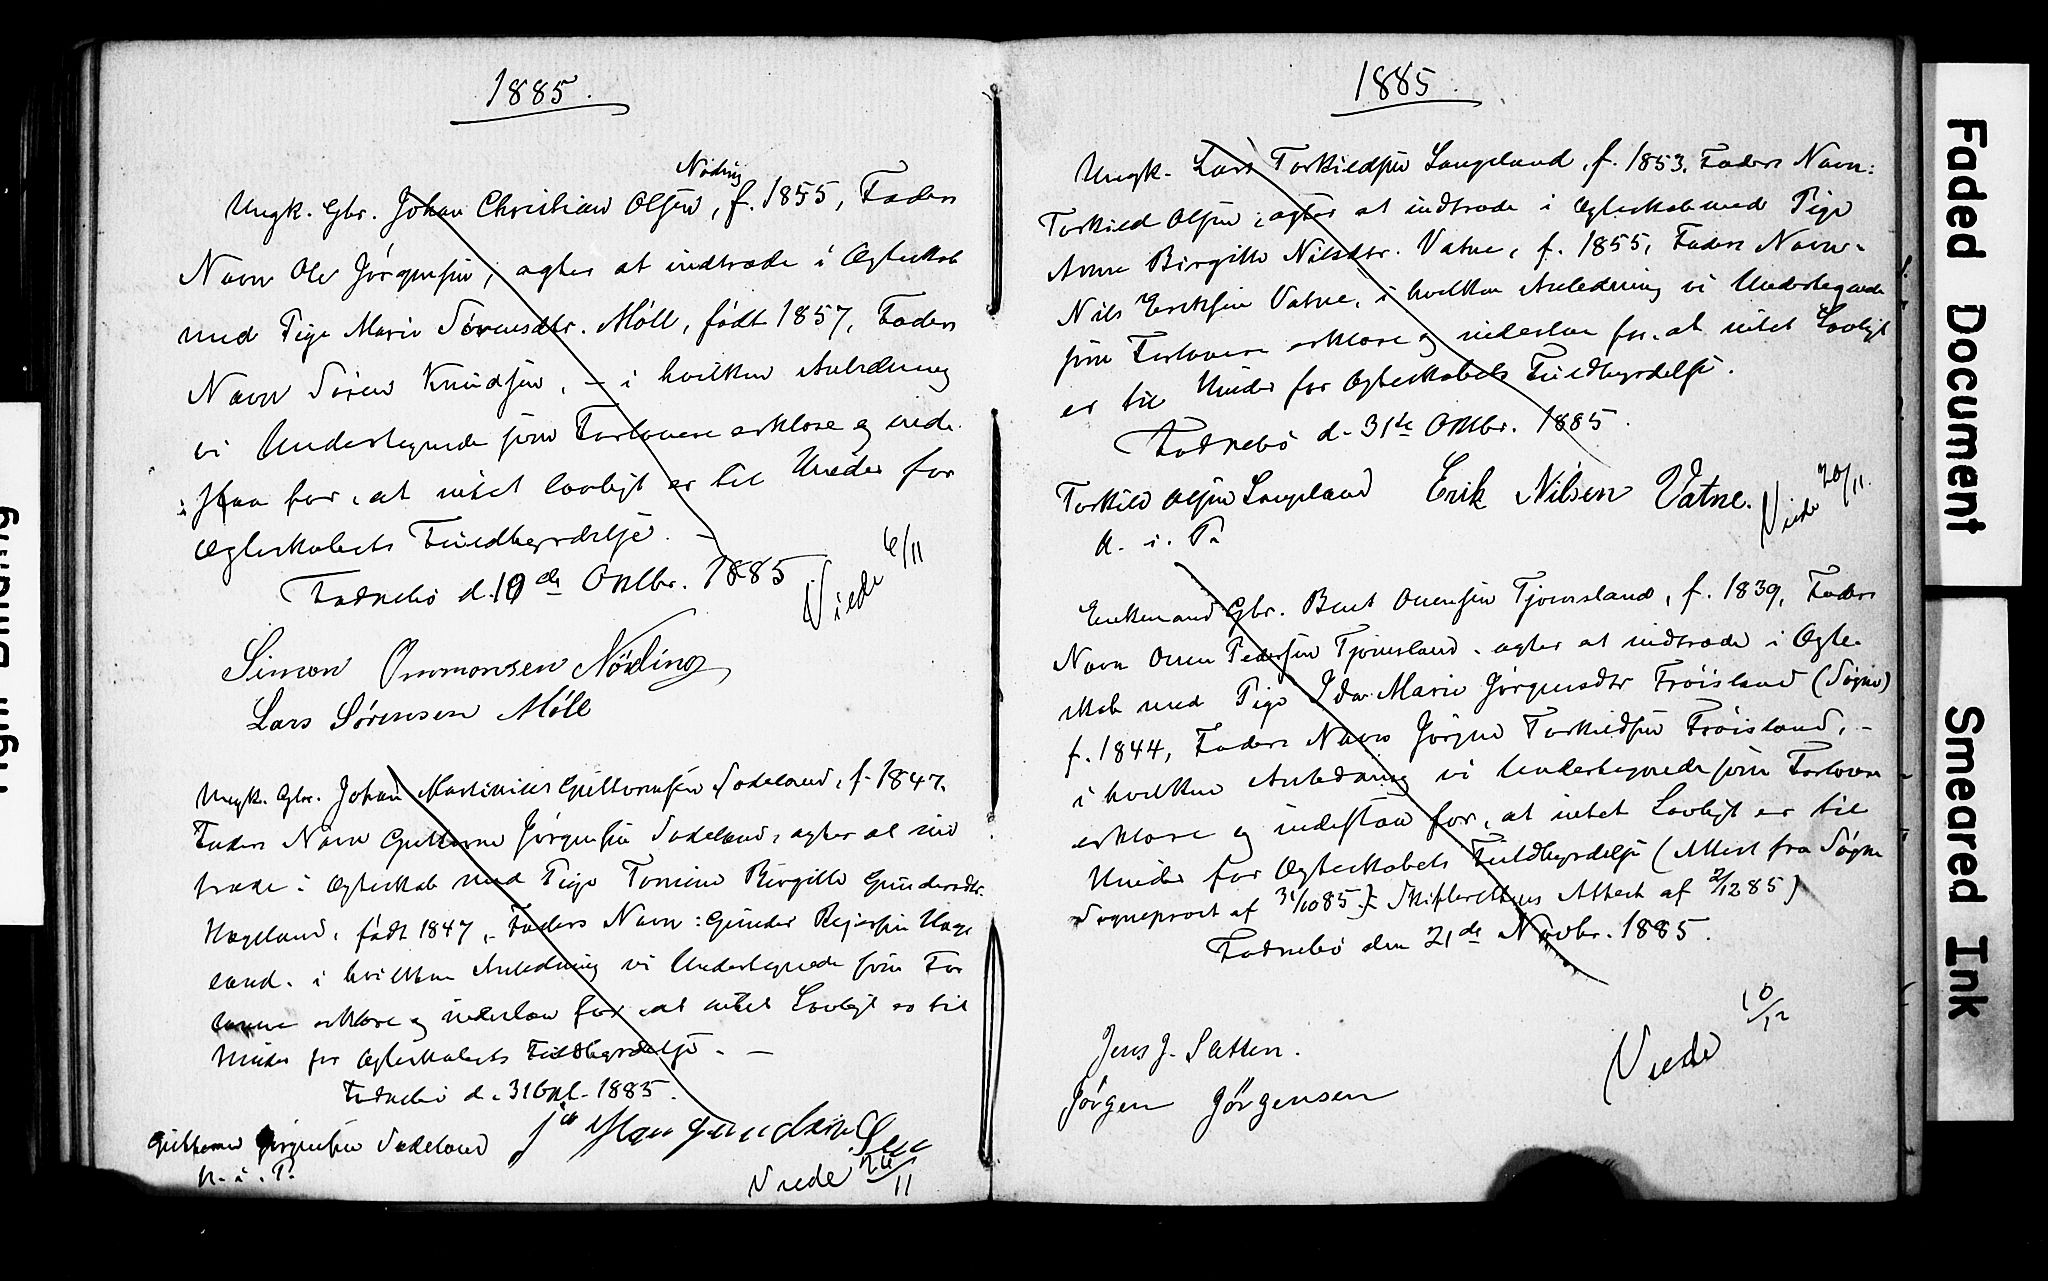 1885.
Nöding
Ungk. Gbr. Johan Christian Olsen, f. 1855, Faders
Navn Ole Jörgensen, agter at indtræde i Ægteskab
med Pige Marie Sörensdtr. Möll, födt 1857, Faders
Navn Sören Knudsen, – i hvilken Anledning
vi Undertegnede som Forlovere erklære og inde
staa for, at intet lovligt er til Hinder for
Ægteskabets Fuldbyrdelse. –
Fodnebö d. 10de Oktbr. 1885
Viede 6/11
Simon Ommonsen Nöding
Lars Sörensen Möll
Ungk. Gbr. Johan Martinius Guttormsen Sodeland, f. 1847.
Faders Navn Guttorm Jörgensen Sodeland, agter at ind
træde i Ægteskab med Pige Tomine Birgitte Gundersdtr.
Hægeland, födt 1847, Faders Navn: Gunder Hæge
land. i hvilken Anledning vi Undertegnede som For
lovere erklære og indestaa for at intet Lovligt er til
Hinder for Ægteskabets Fuldbyrdelse. –
Fodnebö d. 31 Okt. 1885.
Guttorm Jörgensen Sodeland
m. i. P.
Viede 26/11
1885.
Ungk. Lars Torkildsen Langeland, f. 1853. Faders Navn:
Torkild Olsen; agter at indtræde i Ægteskab med Pige
Anne Birgitte Nilsdtr. Vatne, f. 1855, Faders Navn
Nils Eriksen Vatne, i hvilken Anledning vi Undertegnede
som Forlovere erklære og indestaa for, at intet Lovligt
er til Hinder for Ægteskabets Fuldbyrdelse.
Fodnebö d. 31te Oktbr. 1885.
Torkild Olsen Langeland Erik Nilsen Vatne.
m. i. P.
Viede 20/11.
Enkemand Gbr. Bent Onensen Tjomsland, f. 1839, Faders
Navn Onen Pedersen Tjomsland. agter at indtræde i Ægte-
skab med Pige Ida Marie Jörgensdtr Fröisland (Sögne)
f. 1844, Faders Navn Jörgen Torkildsen Fröisland, –
i hvilken Anledning vi Undertegnede som Forlovere
erklære og indestaa for, at intet Lovligt er til
Hinder for Ægteskabets Fuldbyrdelse (Attest fra Sögne
Sogneprest af 31/10 85. Skifterettens Attest af 2/12 85)
Fodnebö den 21de Novbr. 1885.
Jens J. Sætten.
Jörgen Jörgensen
Viede 10/12
Faded Document
Smeared Ink